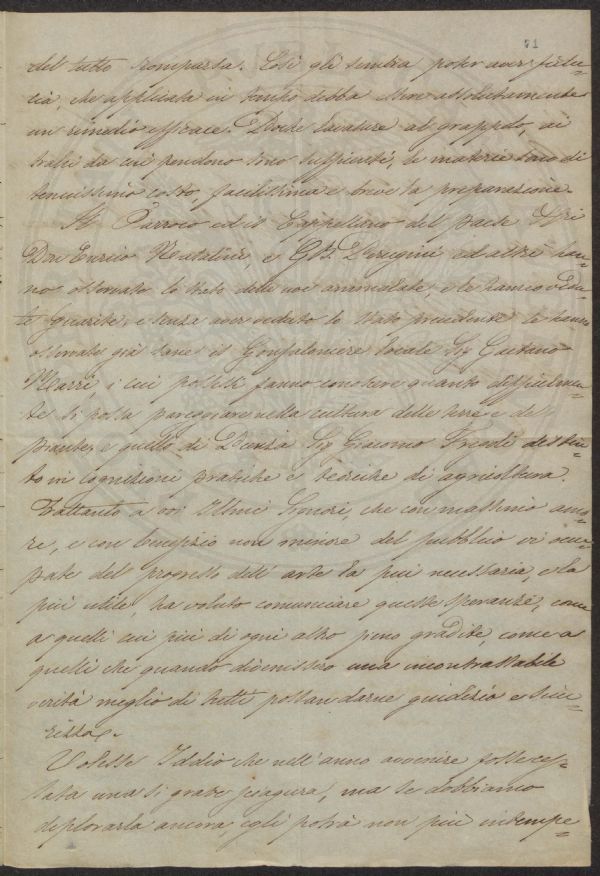 71
del tutto scomparsa. Così gli sembra poter aver fidu=
cia, che applicata in tempo debba essere assolutamente
un rimedio efficace. Poche lavature al grappolo, ai
tralci da cui pendono sono sufficienti, le materie sono di
tenuissimo costo, facilissima e breve la preparazione.
Il Parroco ed il Cappellano del paese
Don Enrico Natalini, e GB. Perugini ed altri han=
no osservato lo stato delle uve ammalate, e le hanno vedu=
te guarite, e senza aver veduto lo stato precedente le hanno
osservate già sane il Gonfaloniere locale Sig Gaetano
Marri, i cui possessi fanno conoscere quanto difficilmen=
te si possa pareggiare nella cultura delle terre e del
piante, e quello di Sig Giacomo
to in cognizioni pratiche e teoriche di agricoltura.
Frattanto a voi Illmi Signori, che con massimo amo=
re, e con benefizio non minore del pubblico vi occu=
pate del progresso dell' arte la più necessaria, e la
più utile, ha voluto comunicare queste speranze, come
a quelli cui più di ogni altro sieno gradite, come a
quelli che quando divenissero una incontrastabile
verità meglio di tutti possan darne giudizio e sicu=
rezza.
Volesse Iddio che nell' anno avvenire fosse ces=
sata una sì grave sciagura, ma se dobbiamo
deplorarla ancora, egli potrà non più intempe=